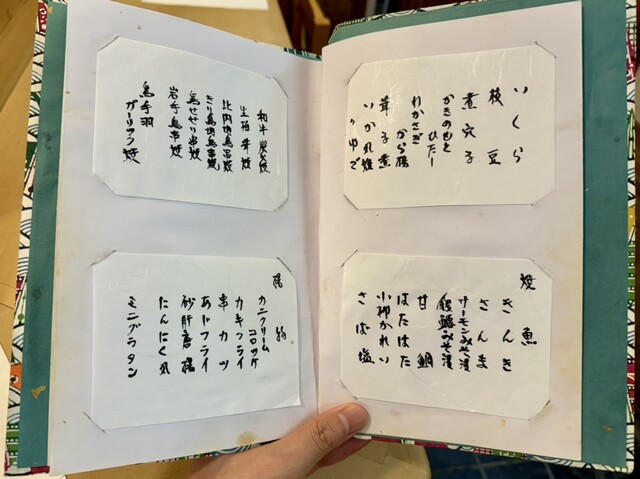 いくら
枝豆
煮穴子
かきのもと
ひたし
わかさぎ
から揚
茸子煮
いか丸焼
〃ゆで
焼魚
きんき
さんま
サーモンみそ漬
銀鱈みそ漬
甘鯛
はたはた
小柳かれい
さば塩
和牛炭火焼
生椎茸焼
比内鶏串焼
きり鳥鶏串焼
鳥せせり串焼
岩手鳥串焼
鳥手羽
ガーリック焼
揚物
カニクリーム
コロッケ
カキフライ
串カツ
あじフライ
砂肝唐揚
たんにく丸
ミニグラタン